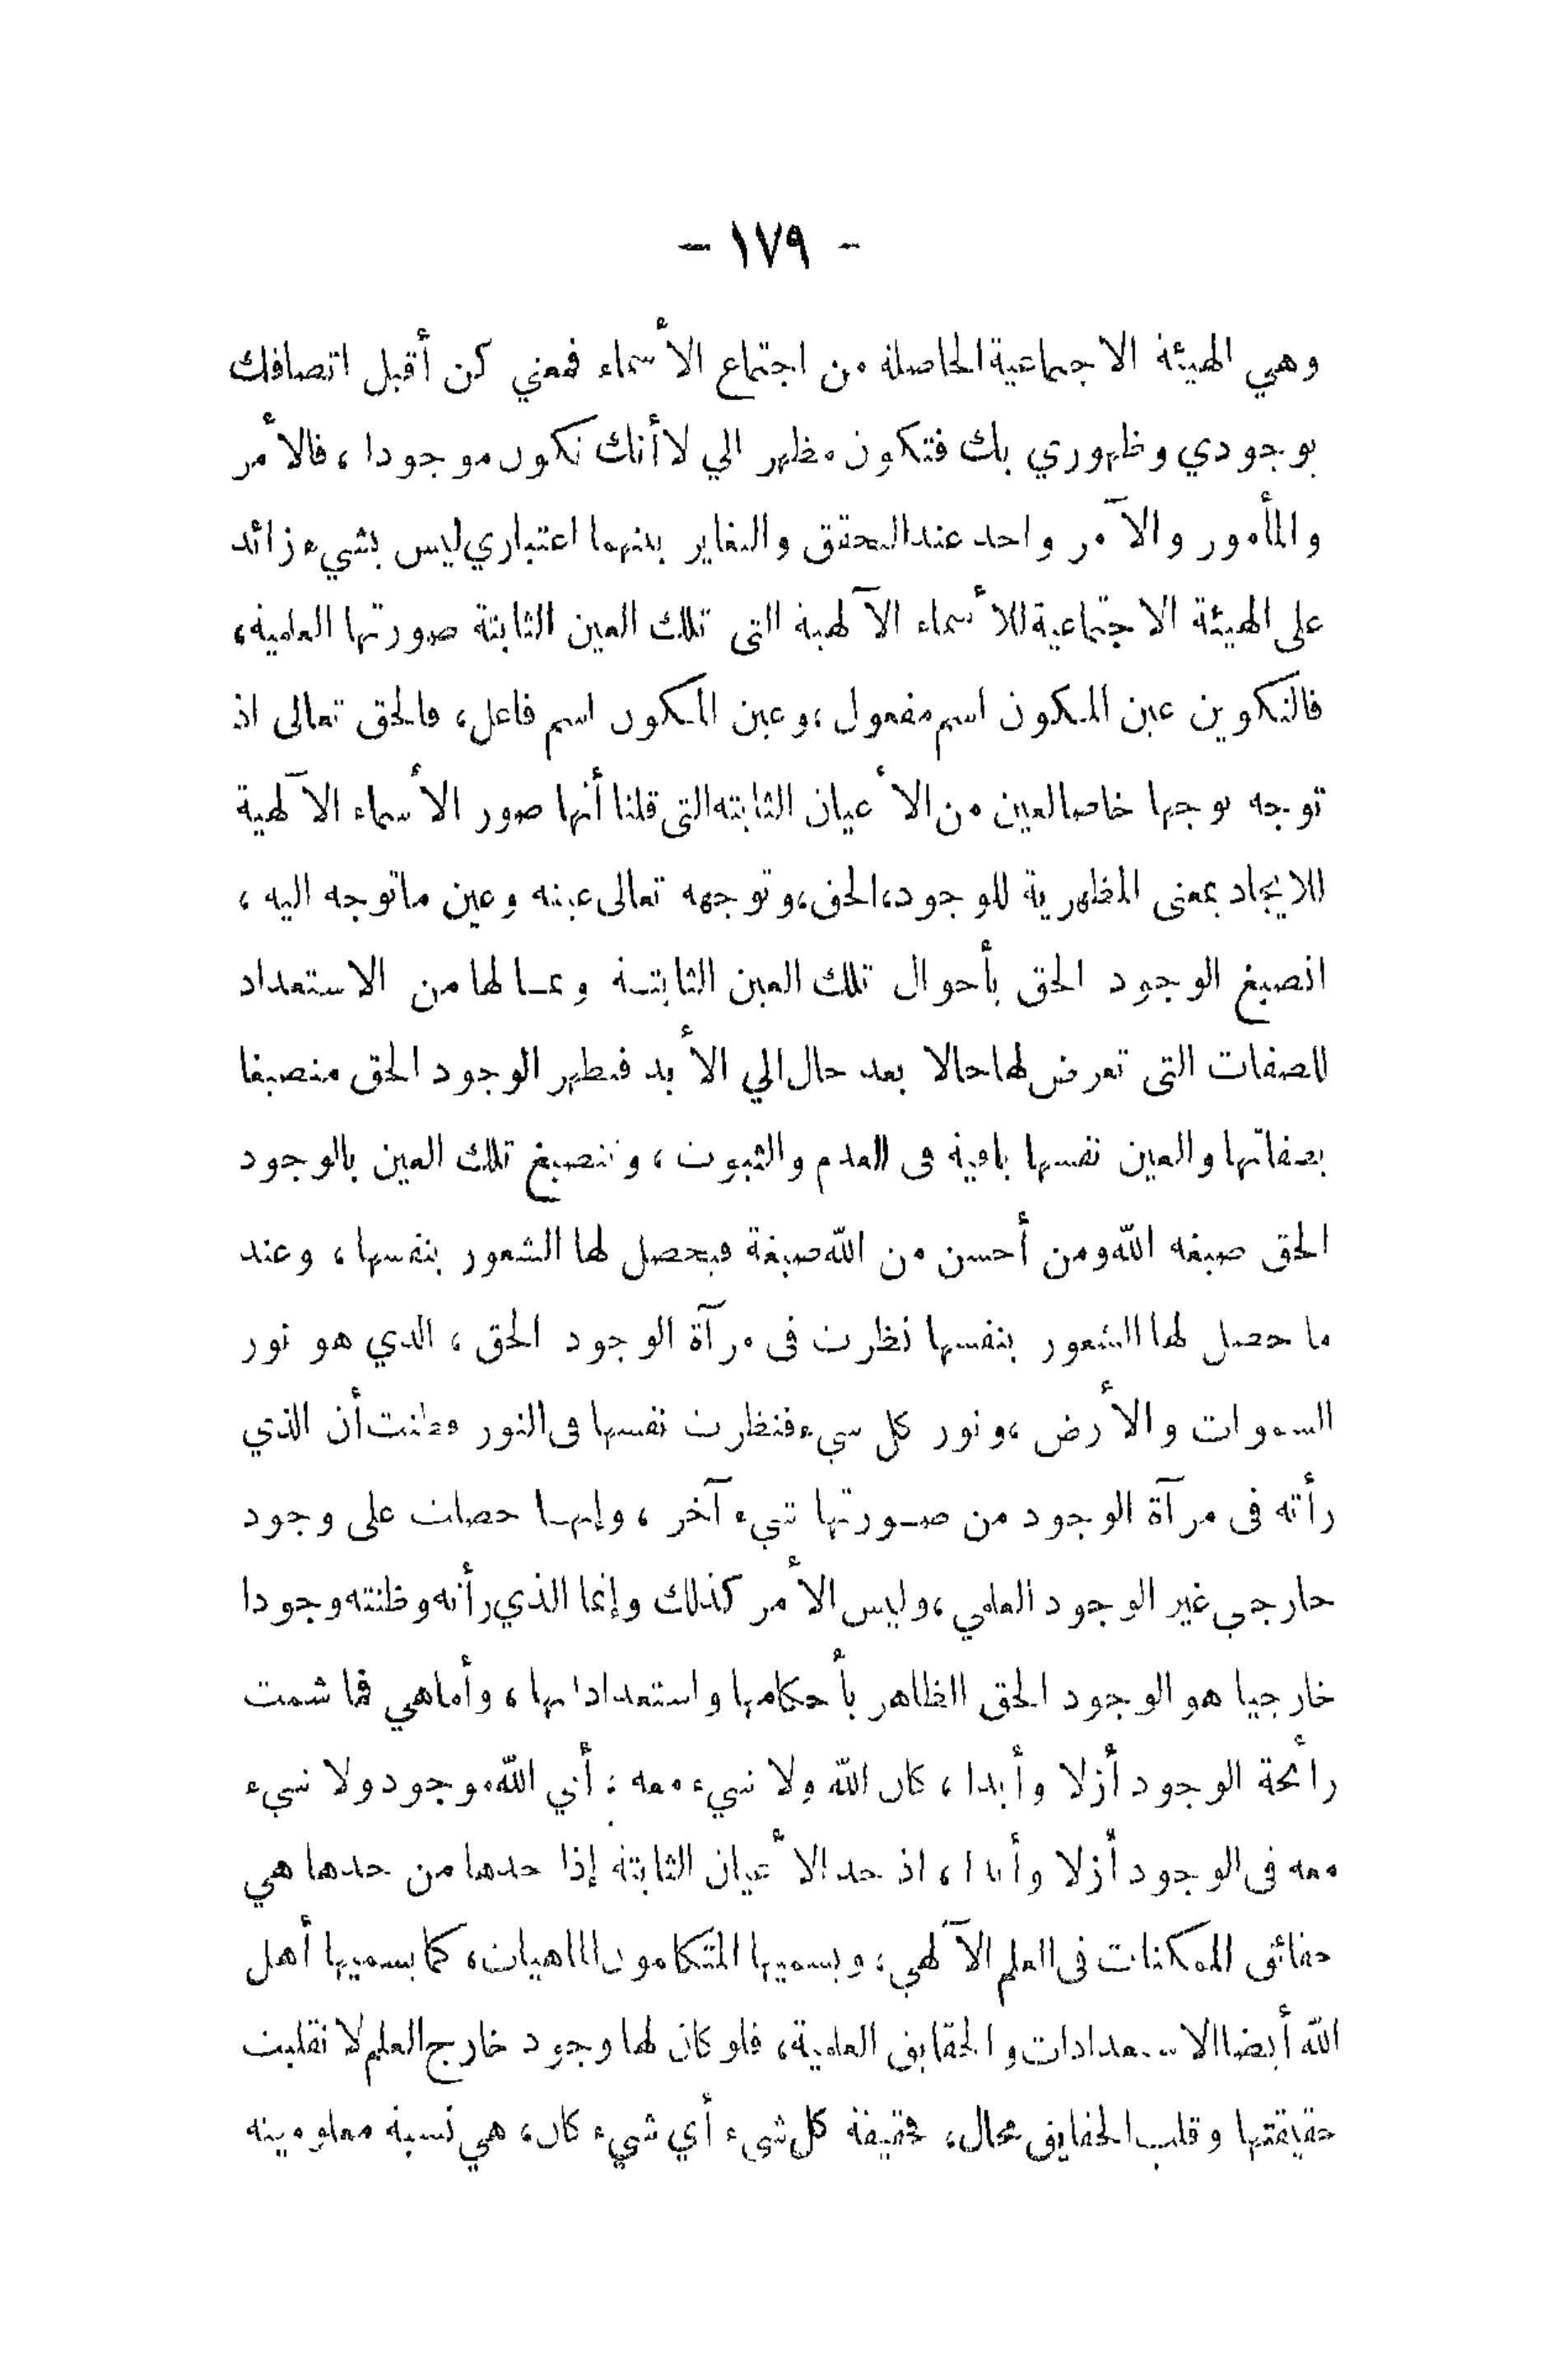 - ١٧٩ -
وهي الهيئة الاجتماعية الحاصلة من اجتماع الأسماء فمعني كن أقبل اتصافك
بوجودي وظهوري بك فتكون مظهر الي لا أنك تكون موجودا، فالأمر
والمأمور والآمر واحد عند المحقق والتغاير بينهما اعتباري ليس بشيء زائد
على الهيئة الاجتماعية للأسماء الآلهية التى تلك العين الثابتة صورتها العلمية،
فالتكوين عين المكون اسم مفعول، وعين المكون اسم فاعل، فالحق تعالى اذ
توجه توجها خاصا لعين من الأعيان الثابتة التى قلنا أنها صور الأسماء الآلهية
للايجاد بمعنى المظهرية للوجود، الحق، وتوجهه تعالى عينه وعين ماتوجه اليه،
انصبغ الوجود الحق بأحوال تلك العين الثابتة وعا لها من الاستعداد
للصفات التى تعرض لها حالا بعد حال الي الأبد فيظهر الوجود الحق منصبغا
بصفاتها والعين نفسها باقية فى العدم والثبوت، وتنصبغ تلك العين بالوجود
الحق صبغة الله ومن أحسن من الله صبغة فيحصل لها الشعور بنفسها، وعند
ما حصل لها الشعور بنفسها نظرت فى مرآة الوجود الحق، الذي هو نور
السموات والأرض، ونور كل شيء فنظرت نفسها فى النور فظنت أن الذي
رأته فى مرآة الوجود من صورتها شيء آخر، وإنها حصلت على وجود
خارجى غير الوجود العلمي، وليس الأمر كذلك وإنما الذي رأته وظنته وجودا
خارجيا هو الوجود الحق الظاهر بأحكامها واستعداداتها، وأماهي فما شمت
رائحة الوجود أزلا وأبدا، كان الله ولا شيء معه: أني الله موجود ولا شيء
معه فى الوجود أزلا وأبدا، اذ حد الأعيان الثابتة إذا حدها من حدها هي
حقائق الممكنات فى العلم الآلهي، ويسميها المتكلمون الماهيات، كما يسميها أهل
الله أيضا الاستعدادات والحقايق العلمية، فلو كان لها وجود خارج العلم لانقلبت
حقيقتها وقلب الحقايق محال، فحقيقة كل شىء أي شيء كان، هي نسبة معلوميته